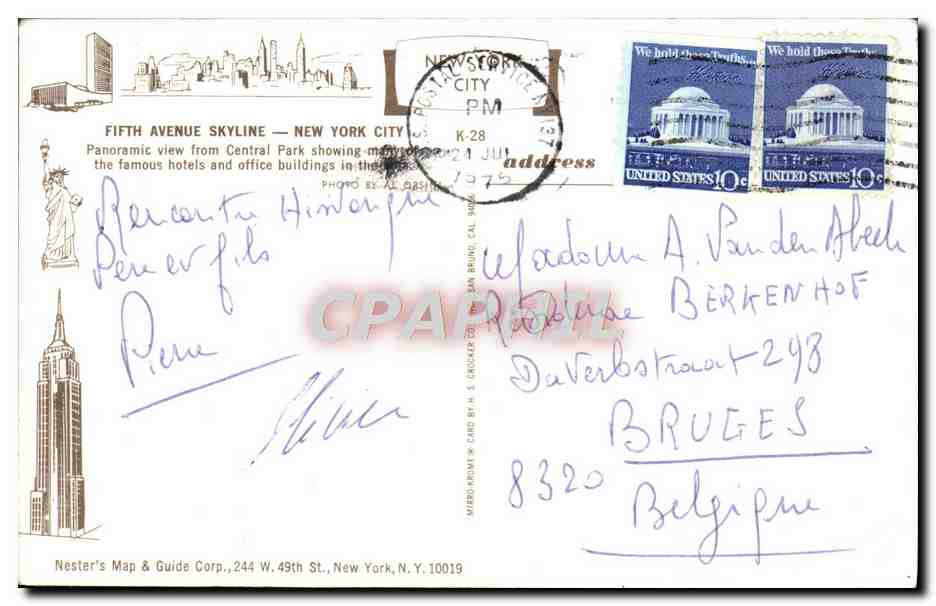 FIFTH AVENUE SKYLINE — NEW YORK CITY
Panoramic view from Central Park showing many of
the famous hotels and office buildings in the
PHOTO BY
NEW YORK
CITY
PM
K-28
24 JUL
1975
U.S. POSTAL SERVICE
address
We hold these Truths...
UNITED STATES 10c
We hold these Truths...
UNITED STATES 10c
Rencontre Historique
Père et fils
Pierre
Olivier
MIRRO-KROME® CARD BY H. S. CROCKER CO., INC., SAN BRUNO, CAL.
Madame A. Van den Abeele
Résidence BERKENHOF
Daverlostraat 293
BRUGES
8320
Belgique
CPAPHIL
Nester's Map & Guide Corp., 244 W. 49th St., New York, N.Y. 10019